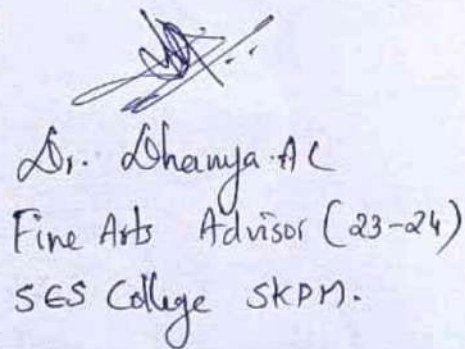 Dr. Dhanya. AC
Fine Arts Advisor (23-24)
SES College SKPM.